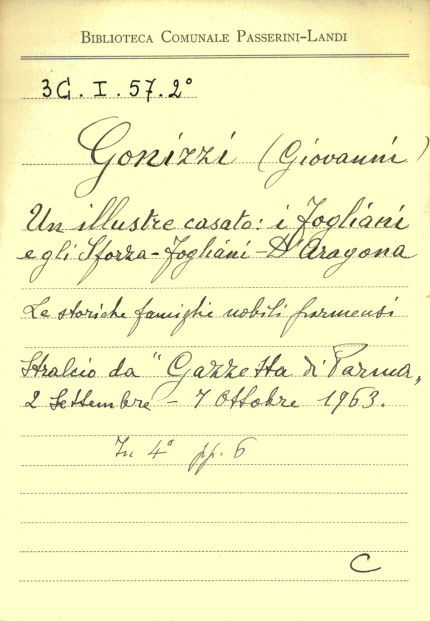 BIBLIOTECA COMUNALE PASSERINI-LANDI
3G. I. 57. 2°
Gonizzi (Giovanni)
Un illustre casato: i Fogliani
e gli Sforza-Fogliani-D'Aragona
Le storiche famiglie nobili parmensi
Stralcio da "Gazzetta di Parma"
2 Settembre - 7 Ottobre 1963.
In 4° pp. 6
C